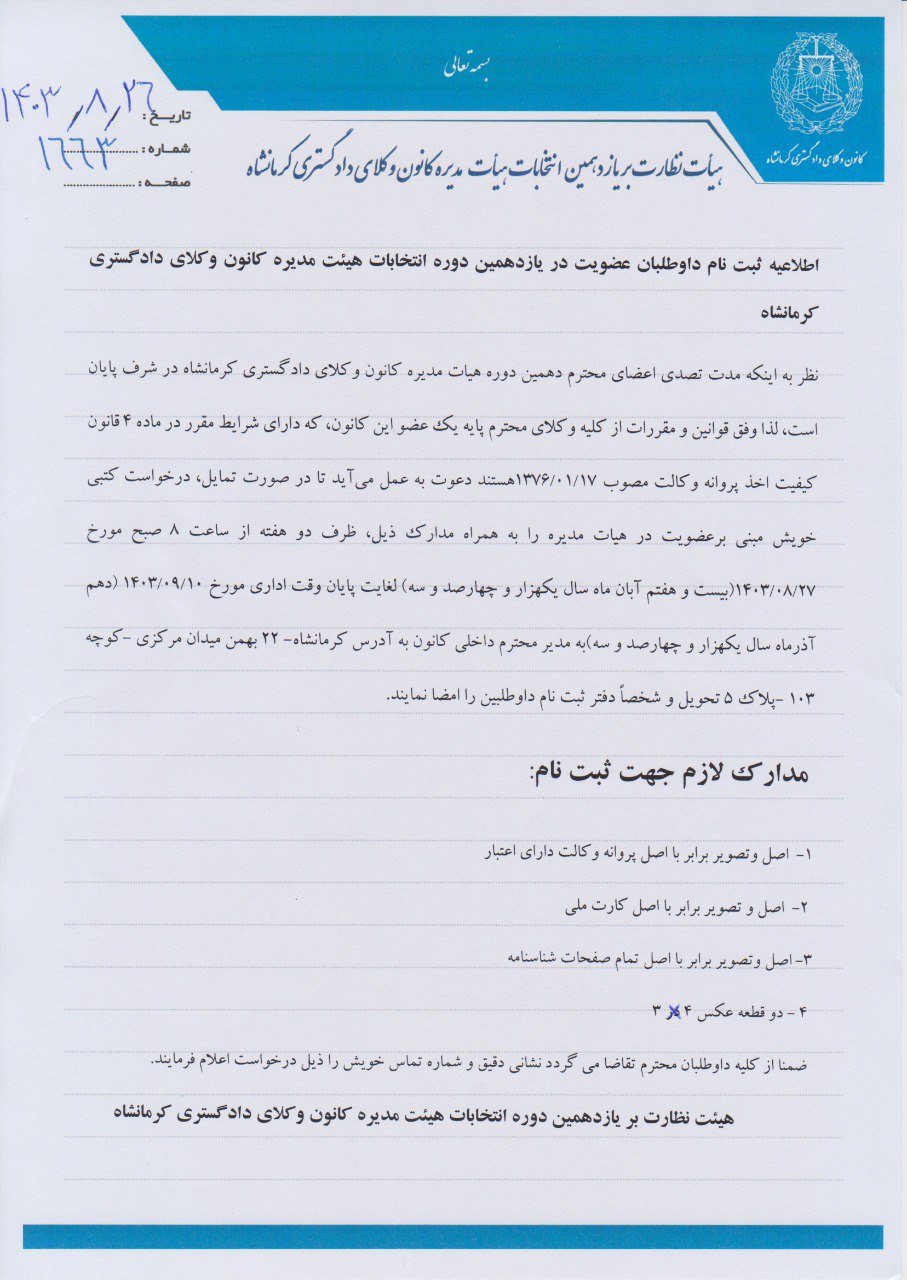 بسمه تعالی
کانون وکلای دادگستری کرمانشاه
تاریخ : ۱۴۰۳/۸/۲۶
شماره : ۱۶۶۳
صفحه :
هیأت نظارت بر یازدهمین انتخابات هیأت مدیره کانون وکلای دادگستری کرمانشاه
اطلاعیه ثبت نام داوطلبان عضویت در یازدهمین دوره انتخابات هیئت مدیره کانون وکلای دادگستری
کرمانشاه
نظر به اینکه مدت تصدی اعضای محترم دهمین دوره هیات مدیره کانون وکلای دادگستری کرمانشاه در شرف پایان
است، لذا وفق قوانین و مقررات از کلیه وکلای محترم پایه یک عضو این کانون، که دارای شرایط مقرر در ماده ۴ قانون
کیفیت اخذ پروانه وکالت مصوب ۱۳۷۶/۰۱/۱۷هستند دعوت به عمل می‌آید تا در صورت تمایل، درخواست کتبی
خویش مبنی برعضویت در هیات مدیره را به همراه مدارک ذیل، ظرف دو هفته از ساعت ۸ صبح مورخ
۱۴۰۳/۰۸/۲۷(بیست و هفتم آبان ماه سال یکهزار و چهارصد و سه) لغایت پایان وقت اداری مورخ ۱۴۰۳/۰۹/۱۰ (دهم
آذرماه سال یکهزار و چهارصد و سه)به مدیر محترم داخلی کانون به آدرس کرمانشاه- ۲۲ بهمن میدان مرکزی -کوچه
۱۰۳ -پلاک ۵ تحویل و شخصاً دفتر ثبت نام داوطلبین را امضا نمایند.
مدارک لازم جهت ثبت نام:
۱- اصل وتصویر برابر با اصل پروانه وکالت دارای اعتبار
۲- اصل و تصویر برابر با اصل کارت ملی
۳-اصل وتصویر برابر با اصل تمام صفحات شناسنامه
۴ - دو قطعه عکس ۴ در ۳
ضمنا از کلیه داوطلبان محترم تقاضا می گردد نشانی دقیق و شماره تماس خویش را ذیل درخواست اعلام فرمایند.
هیئت نظارت بر یازدهمین دوره انتخابات هیئت مدیره کانون وکلای دادگستری کرمانشاه